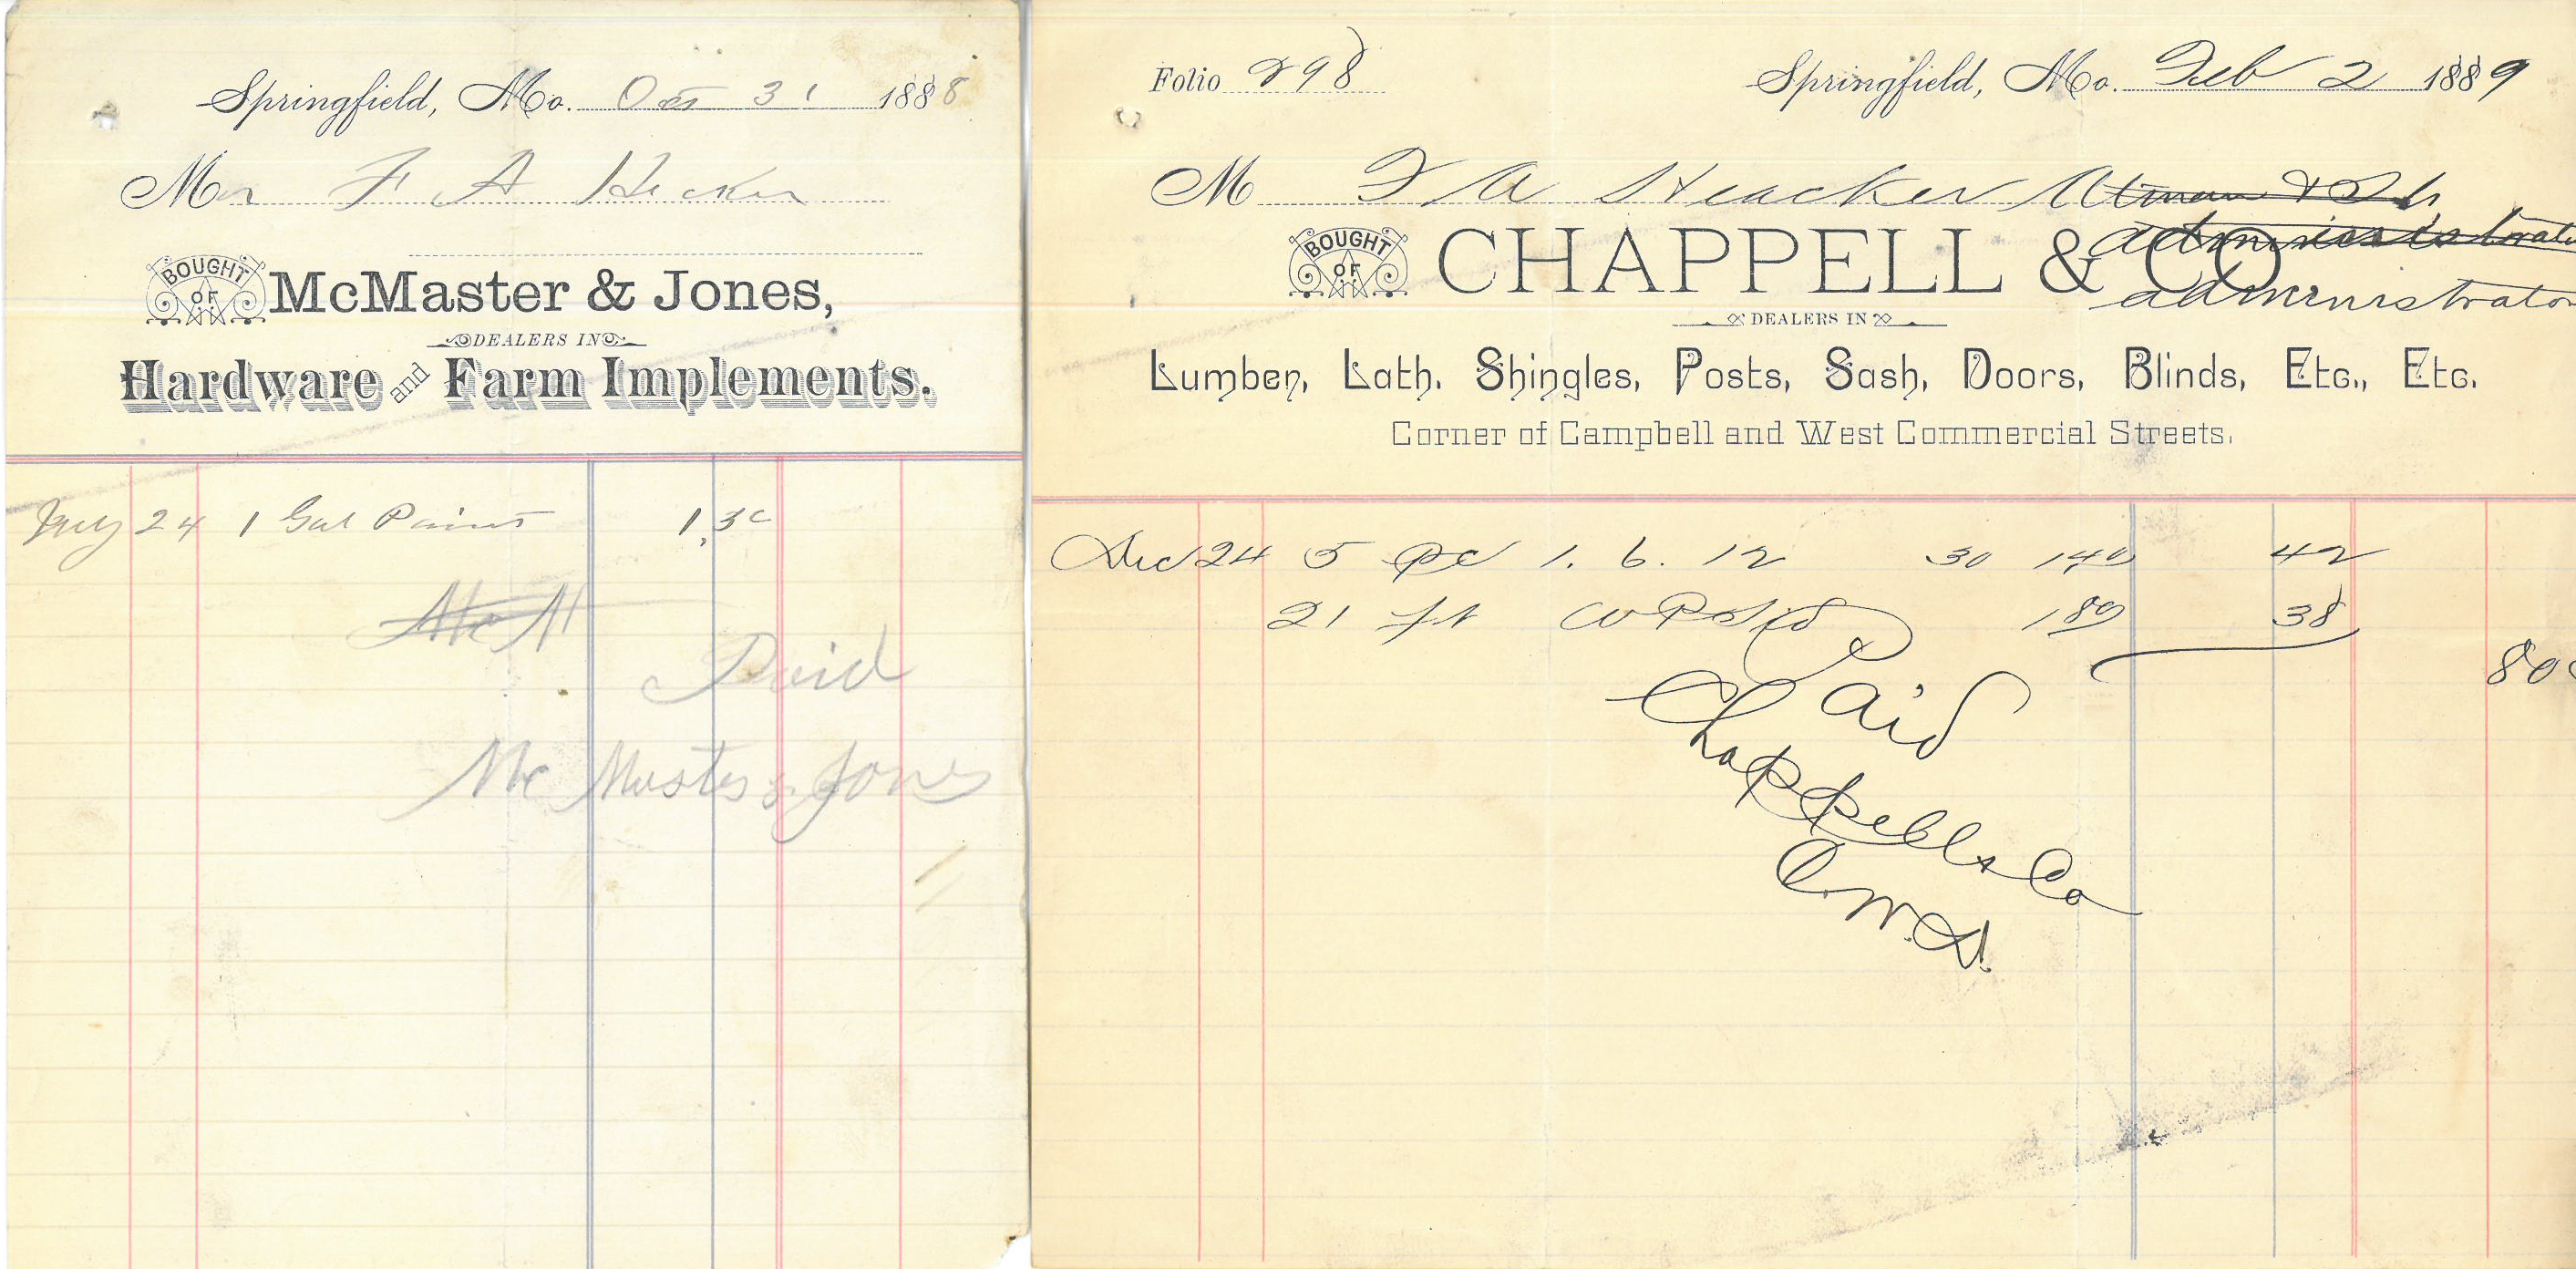 Springfield, Mo. Oct 31 1888
Mr F A Hecker
BOUGHT OF McMaster & Jones,
DEALERS IN
Hardware and Farm Implements.
24 1 Gal Paint 1.30
McM
Paid
McMaster & Jones
Folio 298
Springfield, Mo. Feb 2 1889
M F A Heacker
administrator
BOUGHT OF CHAPPELL & CO
administrator
DEALERS IN
Lumber, Lath, Shingles, Posts, Sash, Doors, Blinds, Etc., Etc.
Corner of Campbell and West Commercial Streets.
Dec 24 5 pc 1. 6. 12 30 140 42
21 ft 180 38
80
Paid
Chappell & Co